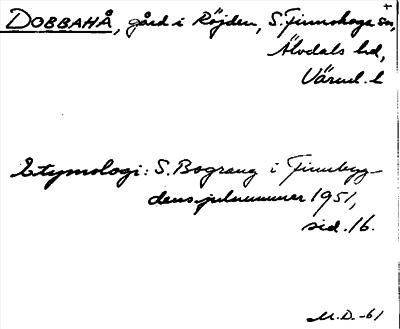 DOBBAHÅ, gård i Röjden, S. Finnskoga sn,
Älvdals hd,
Värml. l
Etymologi: S. Bograng i Finnbyg-
dens julnummer 1951,
sid. 16.
M.D.-61